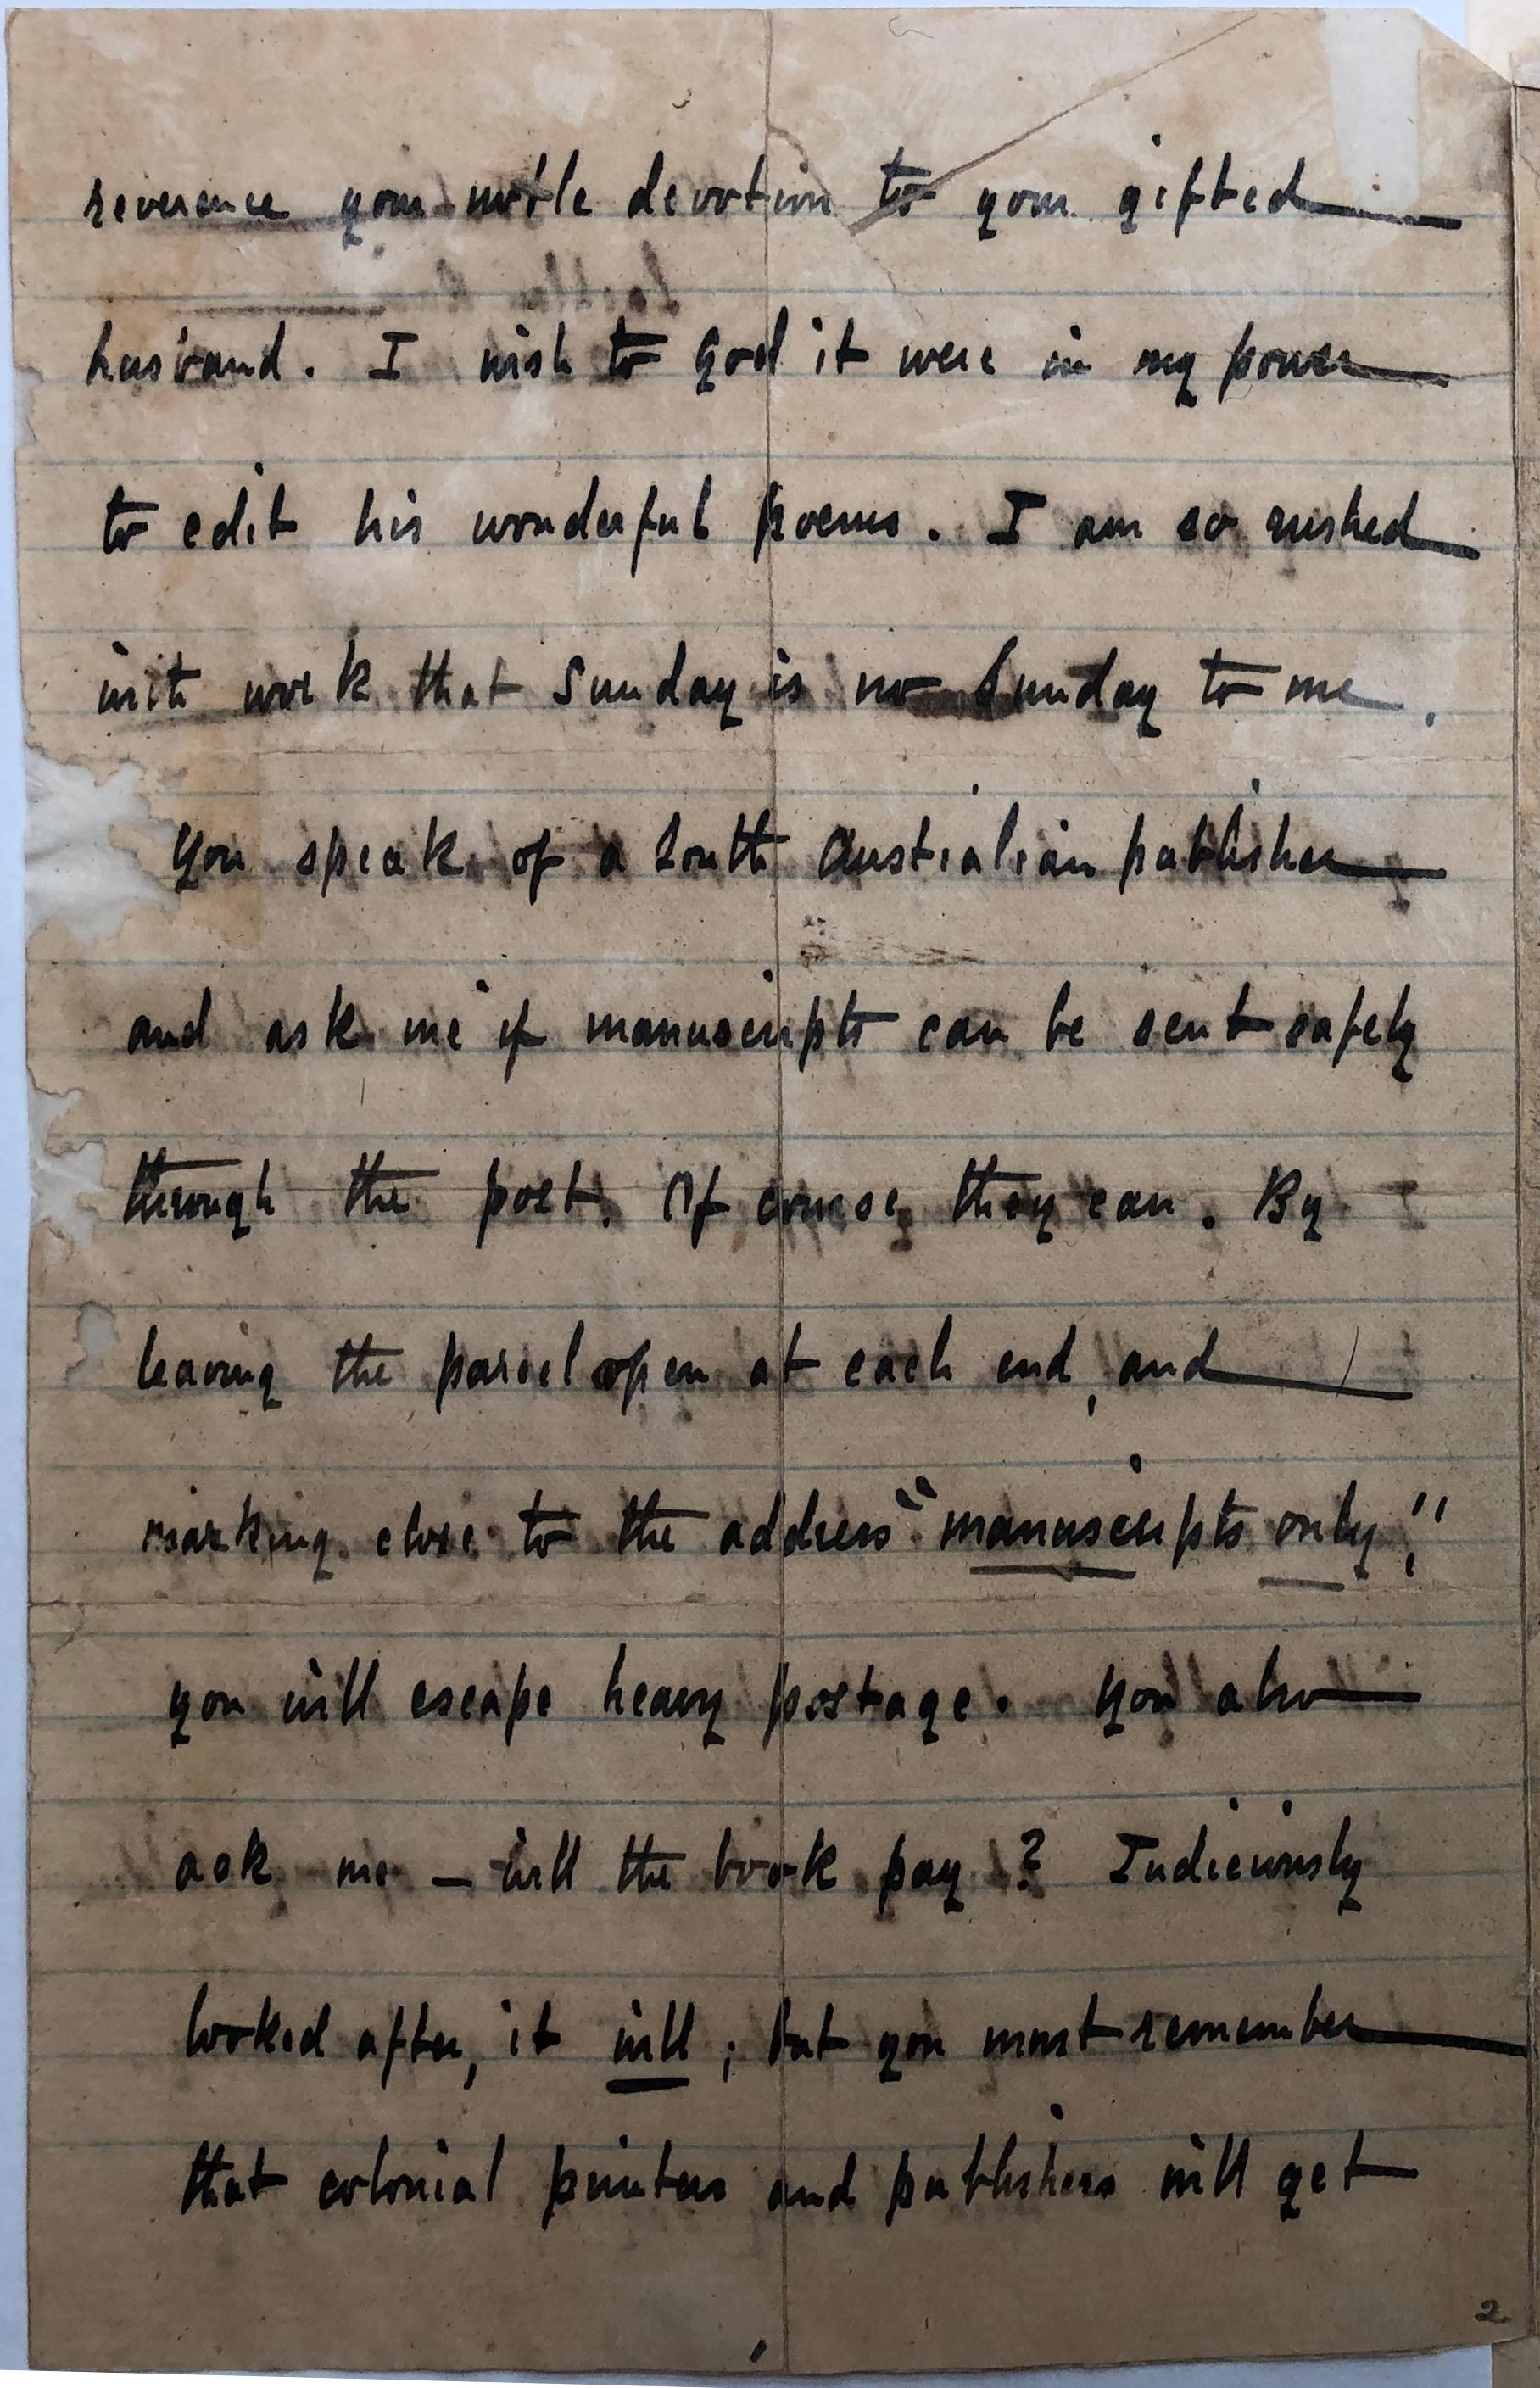 reverence your noble devotion to your gifted
husband. I wish to God it were in my power
to edit his wonderful poems. I am so rushed
with work that Sunday is no Sunday to me.
You speak of a South Australian publisher
and ask me if manuscripts can be sent safely
through the post. Of course they can. By
leaving the parcel open at each end, and
marking close to the address "manuscripts only",
you will escape heavy postage. You also
ask me – will the book pay? Judiciously
looked after, it will; but you must remember
that colonial printers and publishers will get
2